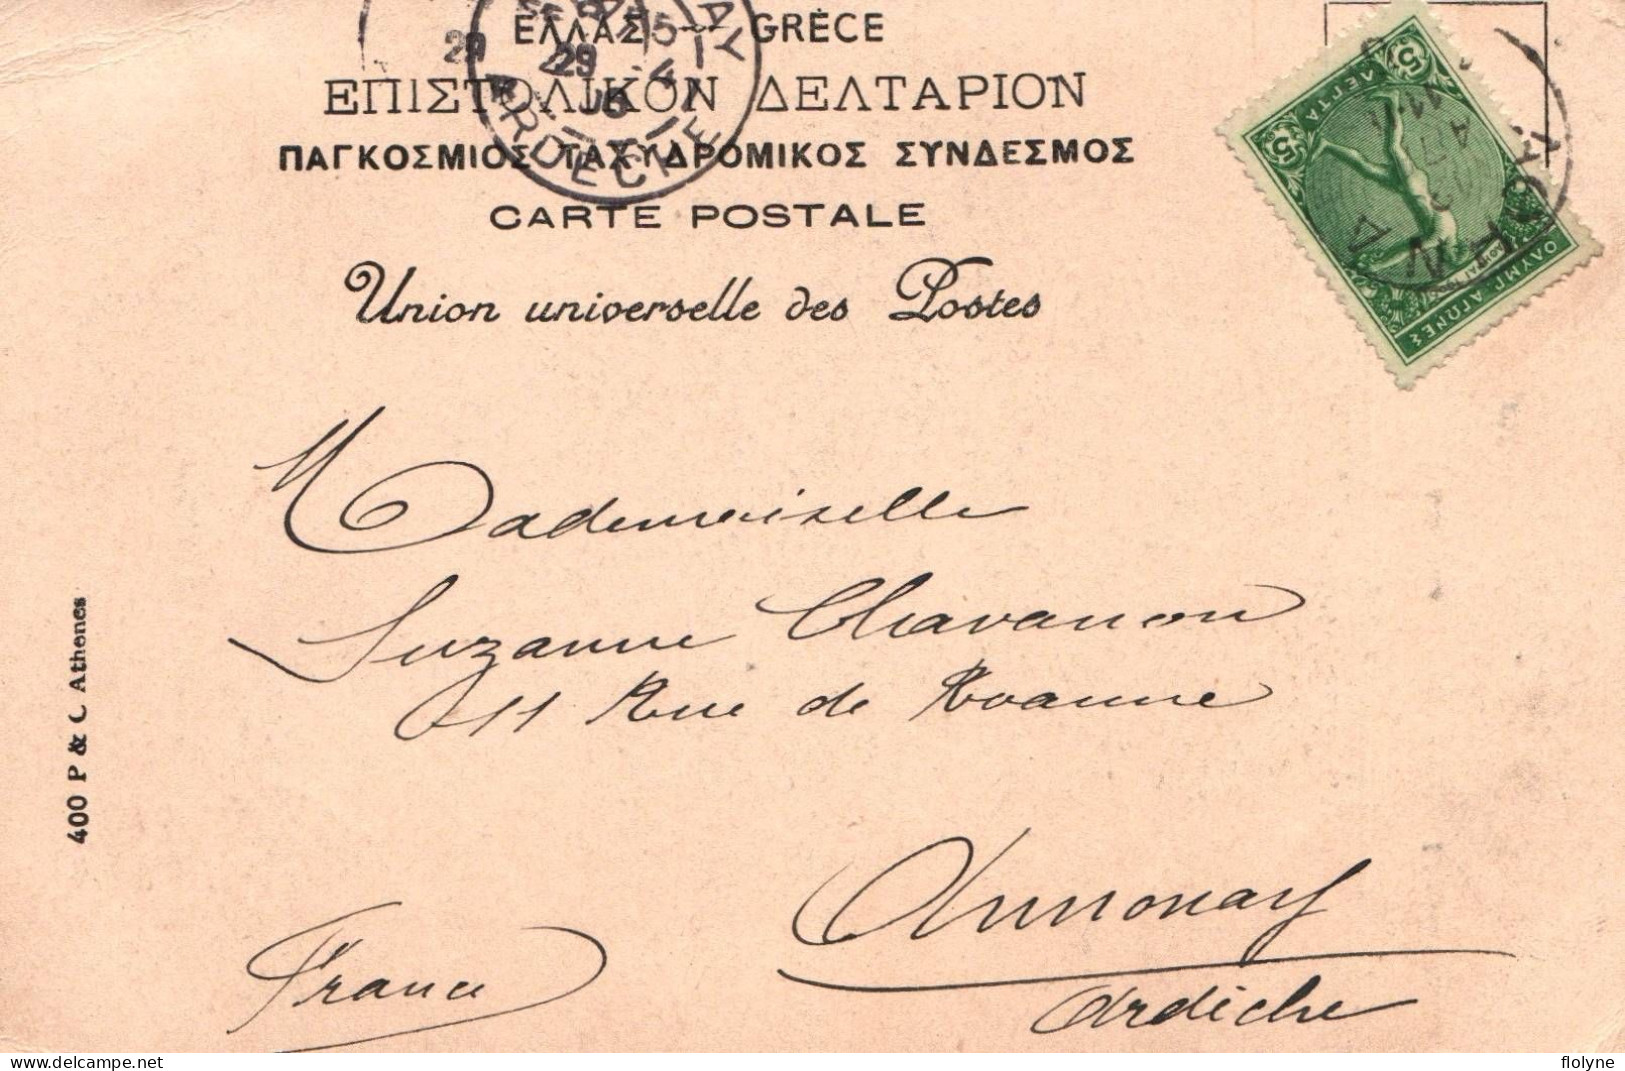 ΕΛΛΑΣ — GRÈCE
ΕΠΙΣΤΟΛΙΚΟΝ ΔΕΛΤΑΡΙΟΝ
ΠΑΓΚΟΣΜΙΟΣ ΤΑΧΥΔΡΟΜΙΚΟΣ ΣΥΝΔΕΣΜΟΣ
CARTE POSTALE
Union universelle des Postes
ARDECHE
5 ΛΕΠΤΑ 5
ΟΛΥΜΠ. ΑΓΩΝΕΣ
Mademoiselle
Suzanne Chavanon
11 Rue de Roanne
Annonay
Ardèche
France
400 P & C. Athenes
flolyne